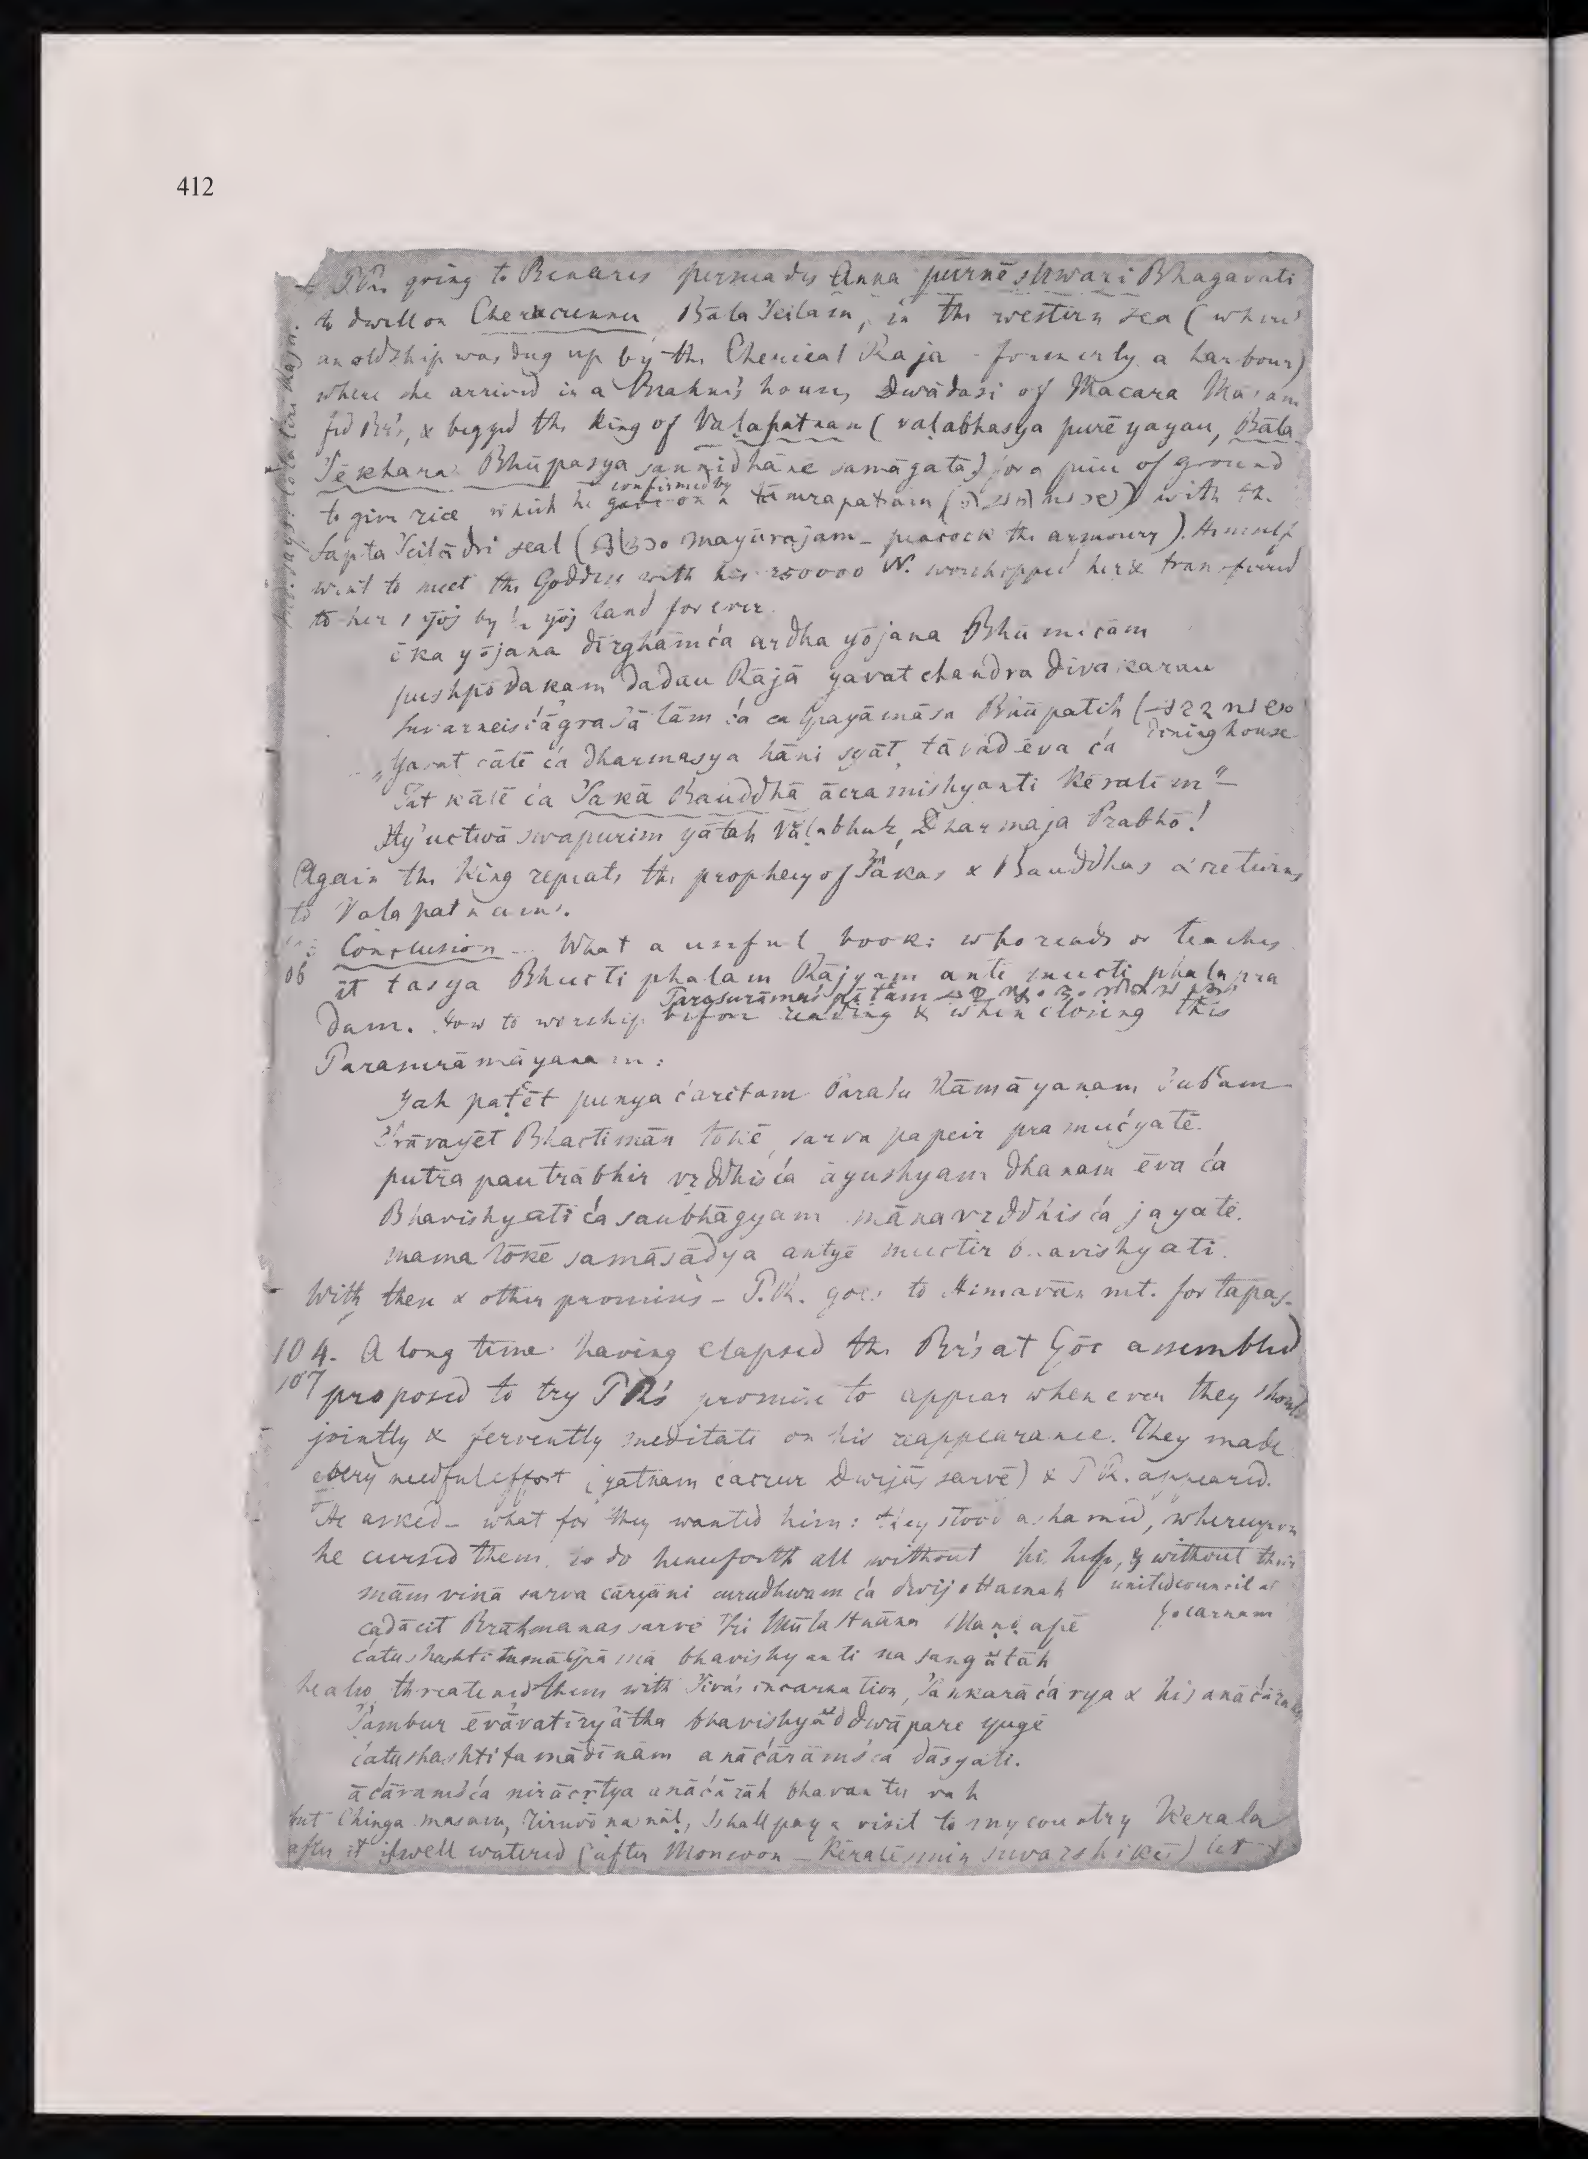 412
P.R. going to Benares persuades Anna pūrnēshwari Bhagavati
to dwell on Cherucunnu, Bāla Seilam, in the western sea (where
an old ship was dug up by the Chericol Raja - formerly a harbour)
where she arrived in a Brahm's house, Dwādasi of Macara Māsam
fed Br's, & begged the king of Vaḷapatnam (vaḷabhasya purē yayau, Bāla
Sēkhara Bhūpasya sannidhānē samāgatā) for a piece of ground
confirmed by
to give rice which he gave on a tāmrapatram with the
Sapta Seilādri seal ( mayūrajam - peacock the armoury). He himself
went to meet the Goddess with his 250000 N. worshipped her & transferred
to her 1 yōj by ½ yōj land for ever.
ēka yōjana dīrghāmća ardha yōjana Bhūmicām
pushpōdakam dadau Rājā yavat chandra divakarau
suvarneisćāgra sālām ća calpayāmāsa Bhūpatih (
dining house
„Yavat cālē ća dharmasya hāni syāt, tāvad ēva ća
Tat kālē ća Sakā Bauddhā ācramishyanti Kēralim"-
Ity' uctwā swapurim yātah Vaḷabhuh, Dharmaja Prabhō!
Again the King repeats the prophecy of Sākas & Bauddhas & returns
to Valapatnam.
Conclusion - What a useful book: who reads or teaches
06 it tasya Bhucti phalam Rājyam antē mucti phala pra
Parasurāma's
dam. How to worship before reading & when closing this
Parasurāmāyanam:
Yah paṭhēt punya ćaritam Parasu Rāmāyaṇam subham
Srāvayēt Bhactimān lōkē, sarva papeir pramućyatē.
putra pautrābhir vṛddhisća āyushyam dhanam ēva ća
Bhavishyati ća saubhāgyam mānavṛddhisća jāyatē.
mama lōkē samāsādya antyē muctir bhavishyati.
With these & other promises - P.R. goes to Himavān mt. for tapas.
104. A long time having elapsed the Br's at Gōc assembled
107 proposed to try PR's promise to appear whenever they should
jointly & fervently meditate on his reappearance. They made
every needful effort (yatnam cacrur Dwijās sarvē) & P.R. appeared.
He asked - what for they wanted him: they stood ashamed, whereupon
he cursed them, to do henceforth all without his help, & without their
united council at
mām vinā sarva cāryāni curudhwam ća dwijottamah
Gocarnam
cadācit Brāhmanas sarvē Sri Mūlasthāna Maṇḍapē
ćatushashti bhavishyanti na sangatāh
he also threatened them with Siva's incarnation, Sankarāćārya & his anāćāram
Sambur ēvāvatīryātha bhavishyād dwāpare yugē
ćatushashtitamādīnām anāćārāmsća dāsyati.
āćāramsća nirācṛtya anāćārāh bhavantu vah
but Chinga masam, Tiruvōnanāḷ, I shall pay a visit to my country Kerala
after it is well watered (after Monsoon - Kēralēsmin suvarshikē) let